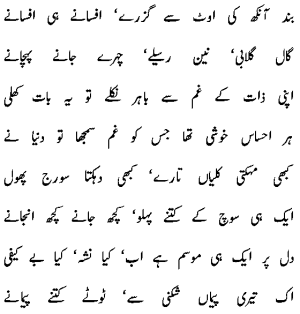 بند آنکھ کی اوٹ سے گزرے، افسانے ہی افسانے
گال گلابی، نین رسیلے، چہرے جانے پہچانے
اپنی ذات کے غم سے باہر نکلے تو یہ بات کھلی
ہر احساس خوشی تھا جس کو غم سمجھا تو دنیا نے
کبھی مہکتی کلیاں تارے، کبھی دہکتا سورج پھول
ایک ہی سوچ کے کتنے پہلو، کچھ جانے کچھ انجانے
دل پر ایک ہی موسم ہے اب، کیا نشہ، کیا بے کیفی
اک تیری پیماں شکنی سے، ٹوٹے کتنے پیمانے